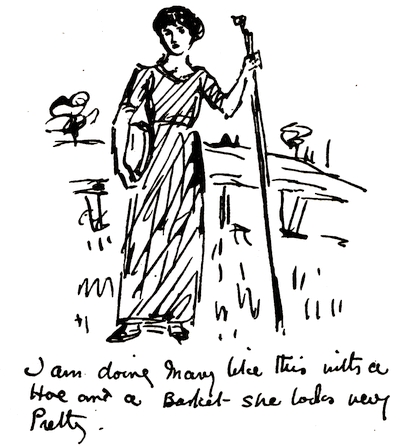 I am doing Mary like this with a
Hoe and a Basket - she looks very
Pretty.